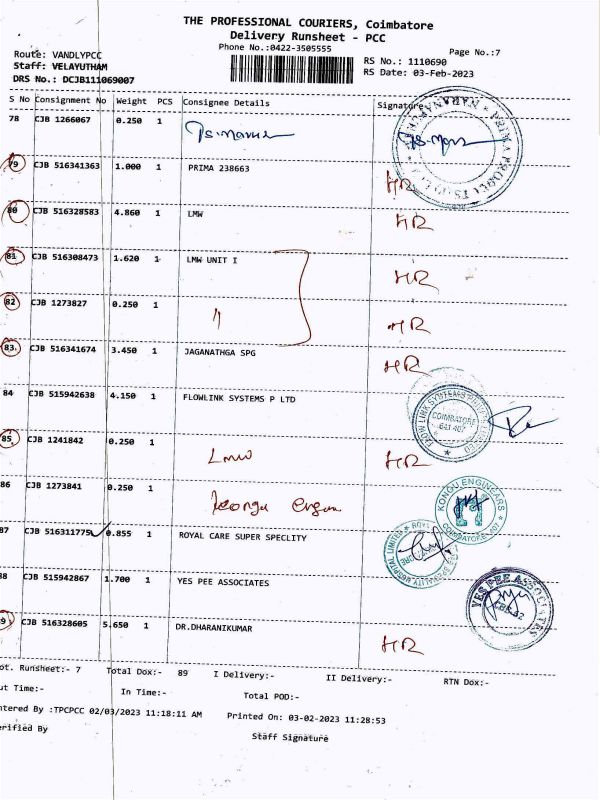 THE PROFESSIONAL COURIERS, Coimbatore
Delivery Runsheet - PCC
Phone No.:0422-3505555
Page No.:7
Route: VANDLYPCC
Staff: VELAYUTHAM
RS No.: 1110690
DRS No.: DCJB111069007
RS Date: 03-Feb-2023
S No Consignment No Weight PCS Consignee Details Signature
78 CJB 1266067 0.250 1
79 CJB 516341363 1.000 1 PRIMA 238663 HR
80 CJB 516328583 4.860 1 LMW HR
81 CJB 516308473 1.620 1 LMW UNIT I HR
82 CJB 1273827 0.250 1 〃 HR
83 CJB 516341674 3.450 1 JAGANATHGA SPG HR
84 CJB 515942638 4.150 1 FLOWLINK SYSTEMS P LTD
COIMBATORE
641 407
85 CJB 1241842 0.250 1 LMW HR
86 CJB 1273841 0.250 1 Kongu Engrn
KONGU ENGINEARS
87 CJB 516311775 0.855 1 ROYAL CARE SUPER SPECLITY
88 CJB 515942867 1.700 1 YES PEE ASSOCIATES
YES PEE ASSOCIATES
89 CJB 516328605 5.650 1 DR.DHARANIKUMAR HR
ot. Runsheet:- 7 Total Dox:- 89 I Delivery:- II Delivery:- RTN Dox:-
ut Time:- In Time:- Total POD:-
ntered By :TPCPCC 02/03/2023 11:18:11 AM Printed On: 03-02-2023 11:28:53
erified By Staff Signature